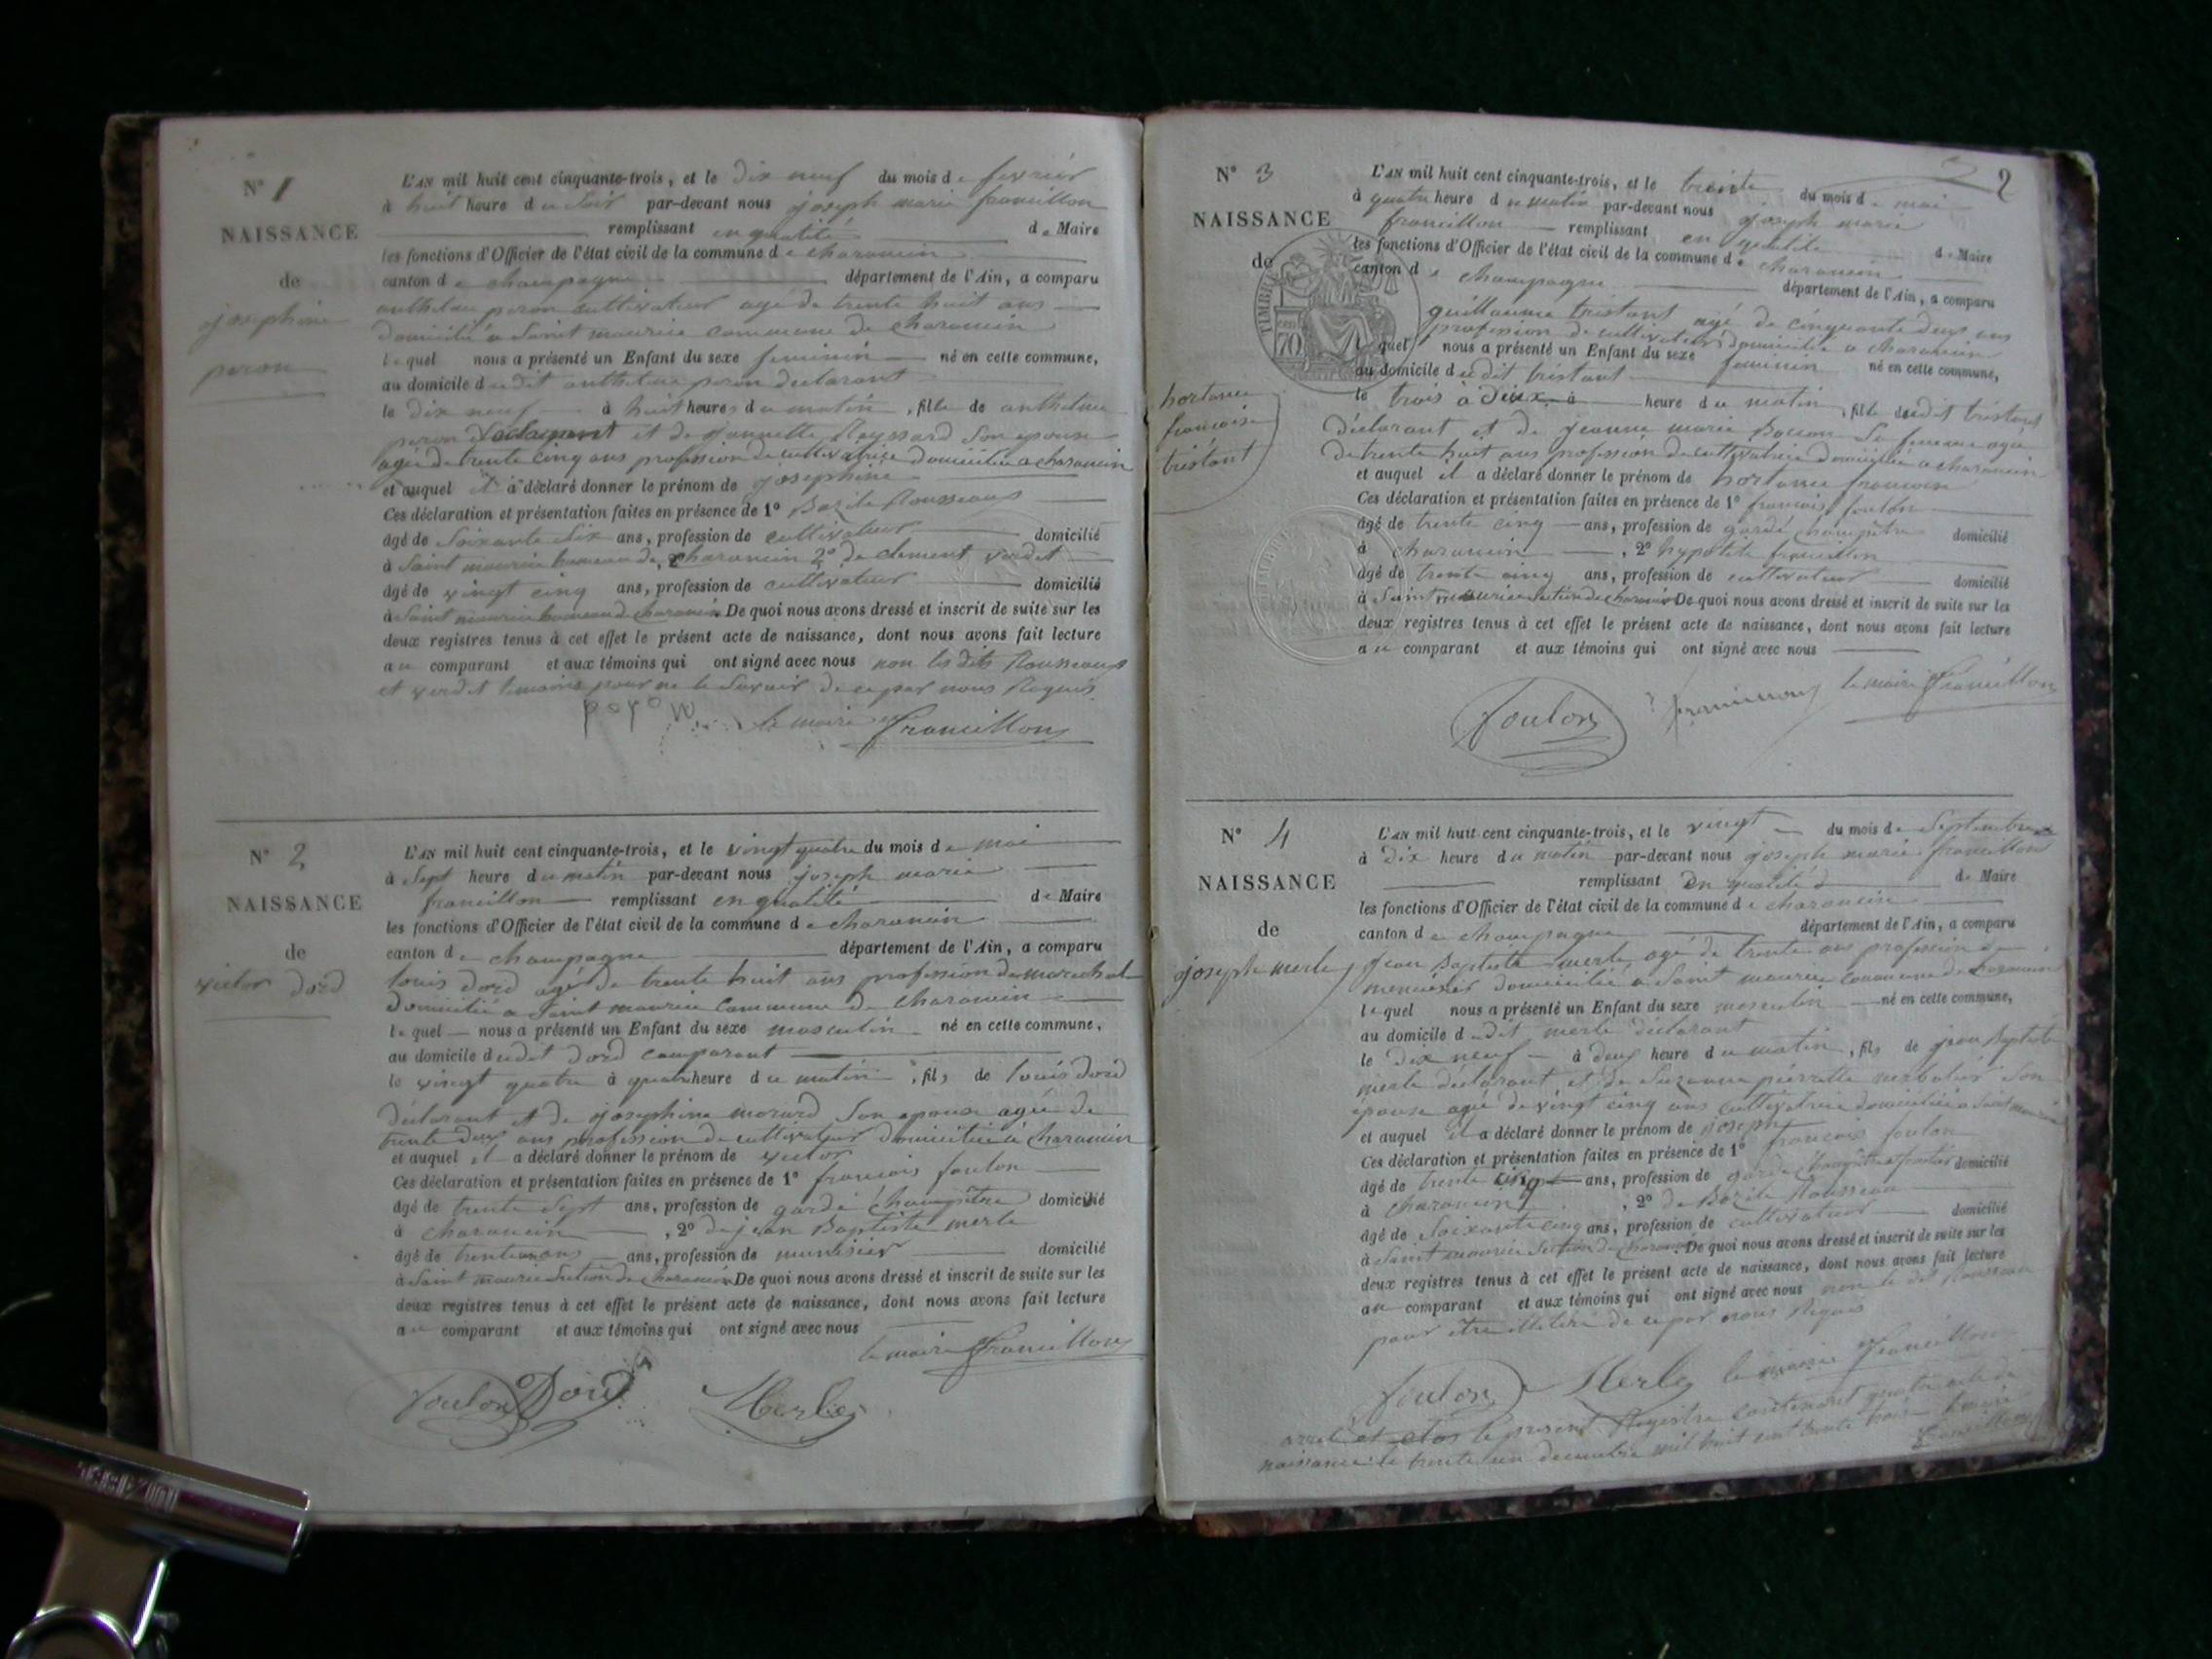 N° 1
NAISSANCE
de
josephine
peron
L'AN mil huit cent cinquante-trois, et le dix neuf du mois de fevrier
à huit heure du soir par-devant nous joseph marie francillon
remplissant en qualité de Maire
les fonctions d'Officier de l'état civil de la commune de charancin
canton de champagne département de l'Ain, a comparu
anthelme peron cultivateur agé de trente huit ans
domicilié a Saint maurice commune de charancin
lequel nous a présenté un Enfant du sexe feminin né en cette commune,
au domicile dudit anthelme peron declarant
le dix neuf à huit heures du matin, fille de anthelme
peron declarant et de jeannette Reyssard son epouse
agée de trente cinq ans profession de cultivatrice domiciliée a charancin
et auquel il a déclaré donner le prénom de josephine
Ces déclaration et présentation faites en présence de 1° Bazile Rousseaux
âgé de soixante six ans, profession de cultivateur domicilié
à Saint maurice hameau de charancin 2° de clement verdet
âgé de vingt cinq ans, profession de cultivateur domicilié
à Saint maurice hameau de charancin De quoi nous avons dressé et inscrit de suite sur les
deux registres tenus à cet effet le présent acte de naissance, dont nous avons fait lecture
au comparant et aux témoins qui ont signé avec nous non les dits Rousseaux
et verdet temoins pour ne le savoir de ce par nous Requis
peron le maire francillon
N° 2
NAISSANCE
de
victor dord
L'AN mil huit cent cinquante-trois, et le vingt quatre du mois de mai
à sept heure du matin par-devant nous joseph marie
francillon remplissant en qualité de Maire
les fonctions d'Officier de l'état civil de la commune de charancin
canton de champagne département de l'Ain, a comparu
louis dord agé de trente huit ans profession de marechal
domicilié a Saint maurice commune de charancin
lequel nous a présenté un Enfant du sexe masculin né en cette commune,
au domicile dudit dord comparant
le vingt quatre à quatre heure du matin, fils de louis dord
déclarant et de josephine morard son epouse agée de
trente deux ans profession de cultivateur domiciliée à charancin
et auquel il a déclaré donner le prénom de victor
Ces déclaration et présentation faites en présence de 1° francois foulon
âgé de trente sept ans, profession de garde champêtre domicilié
à charancin, 2° de jean Baptiste merle
âgé de trente ans ans, profession de menusier domicilié
à Saint maurice Section de charancin De quoi nous avons dressé et inscrit de suite sur les
deux registres tenus à cet effet le présent acte de naissance, dont nous avons fait lecture
au comparant et aux témoins qui ont signé avec nous
le maire francillon
foulon Dord Merle
2
N° 3
NAISSANCE
de
hortance
francoise
tristant
TIMBRE
70
L'AN mil huit cent cinquante-trois, et le trente du mois de mai
à quatre heure du matin par-devant nous joseph marie
francillon remplissant en qualité de Maire
les fonctions d'Officier de l'état civil de la commune de charancin
canton de champagne département de l'Ain, a comparu
guillaume tristant agé de cinquante deux ans
profession de cultivateur domicilié a charancin
lequel nous a présenté un Enfant du sexe feminin né en cette commune,
au domicile dudit tristant
le trois à deux heure du matin, fille dudit tristant
déclarant et de jeanne marie sa femme agée
de trente huit ans profession de cultivatrice domiciliée a charancin
et auquel il a déclaré donner le prénom de hortance francoise
Ces déclaration et présentation faites en présence de 1° francois foulon
âgé de trente cinq ans, profession de garde champêtre domicilié
à charancin, 2° hypolite francillon
âgé de trente cinq ans, profession de cultivateur domicilié
à Saint maurice Section de charancin De quoi nous avons dressé et inscrit de suite sur les
deux registres tenus à cet effet le présent acte de naissance, dont nous avons fait lecture
au comparant et aux témoins qui ont signé avec nous
foulon francillon le maire francillon
N° 4
NAISSANCE
de
joseph merle
L'AN mil huit cent cinquante-trois, et le vingt du mois de Septembre
à dix heure du matin par-devant nous joseph marie francillon
remplissant en qualité de Maire
les fonctions d'Officier de l'état civil de la commune de charancin
canton de champagne département de l'Ain, a comparu
jean Baptiste merle agé de trente ans profession de
menuisier domicilié a Saint maurice commune de charancin
lequel nous a présenté un Enfant du sexe masculin né en cette commune,
au domicile dudit merle declarant
le dix neuf à deux heure du matin, fils de jean Baptiste
merle déclarant, et de Suzanne pierrette son
epouse agée de vingt cinq ans cultivatrice domiciliée a Saint maurice
et auquel il a déclaré donner le prénom de joseph
Ces déclaration et présentation faites en présence de 1° francois foulon
âgé de trente cinq ans, profession de garde champêtre domicilié
à charancin, 2° de Bazile Rousseau
âgé de Soixante cinq ans, profession de cultivateur domicilié
à Saint maurice Section de charancin De quoi nous avons dressé et inscrit de suite sur les
deux registres tenus à cet effet le présent acte de naissance, dont nous avons fait lecture
au comparant et aux témoins qui ont signé avec nous non le dit Rousseau
pour être illetéré de ce par nous Requis
foulon Merle le maire francillon
arrêté et clos le present Registre contenant quatre acte de
naissance le trente un decembre mil huit cent trente trois le maire
francillon